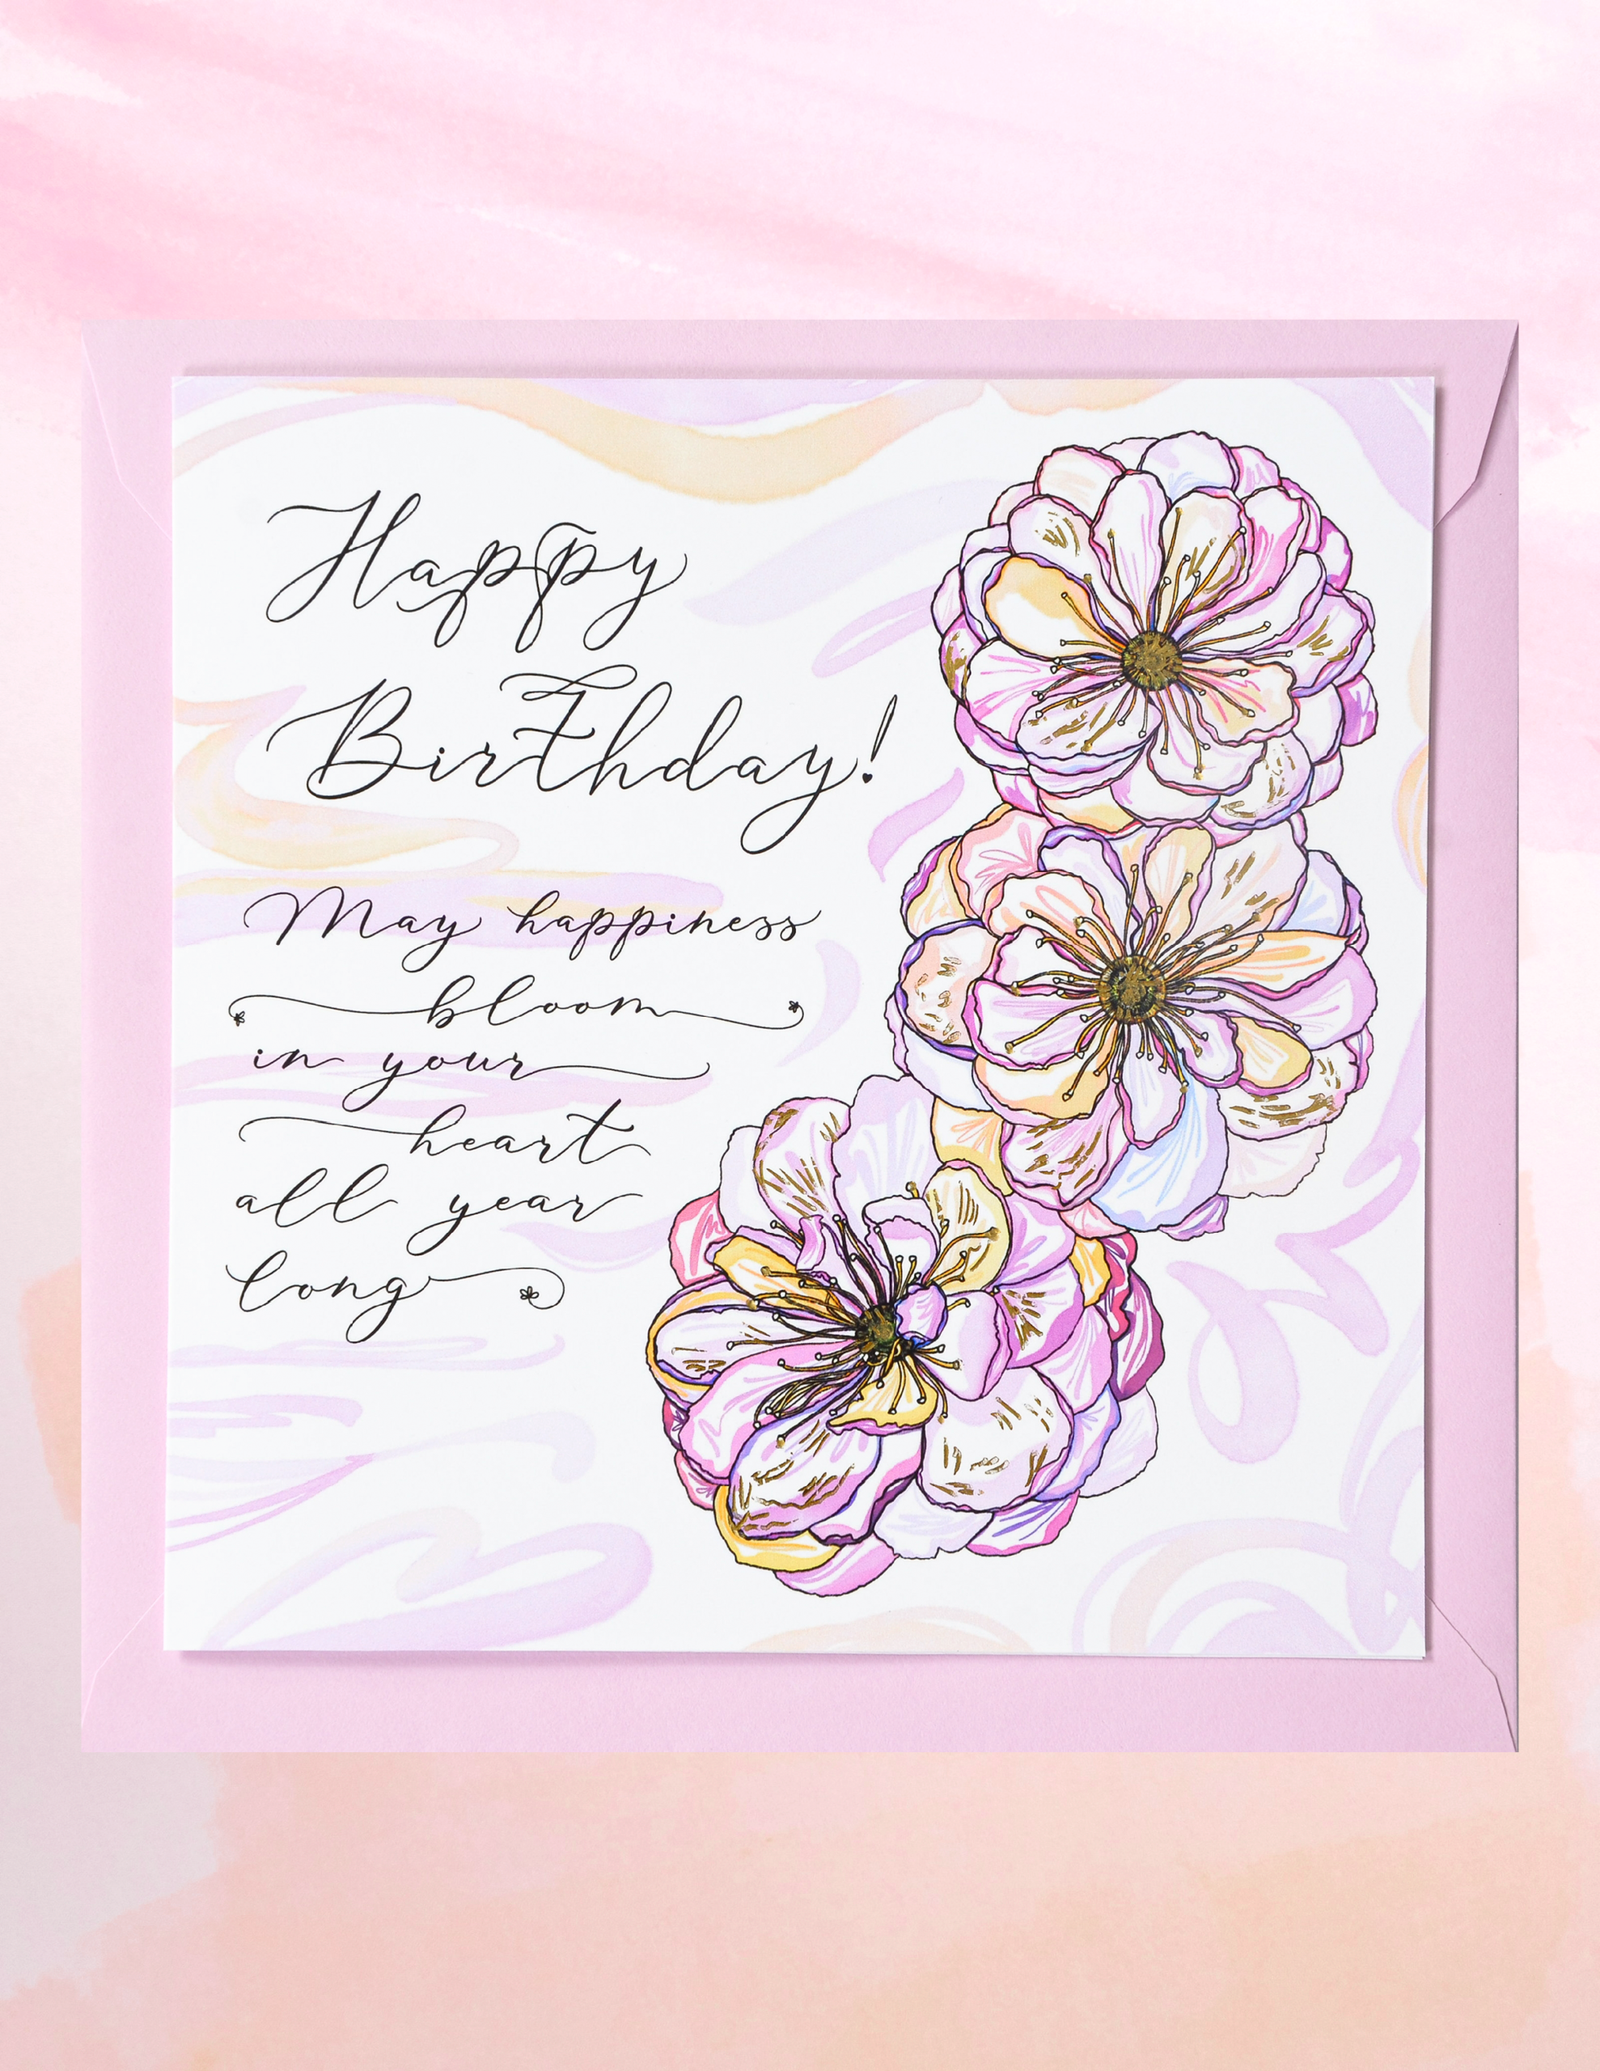 Happy
Birthday!
May happiness
bloom
in your
heart
all year
long